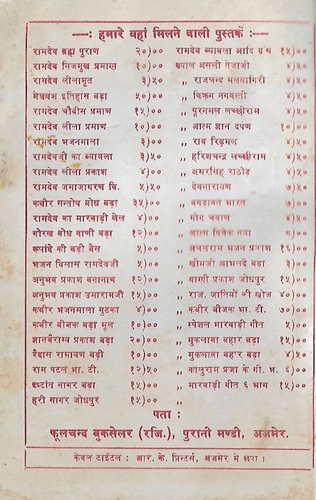 —: हमारे यहां मिलने वाली पुस्तकें :—
रामदेव ब्रह्म पुराण २०)०० रामदेव ब्यावला आदि ग्रन्थ १५)००
रामदेव निजमुख प्रमाण १०)०० ख्याल असली तेजाजी ४)५०
रामदेव लीलामृत ३)५० ,, राजचन्द मलयागिरी ४)५०
मेघवंश इतिहास बड़ा ५०)०० ,, विक्रम नागवन्ती ४)५०
रामदेव चौबीस प्रमाण १५)०० ,, पूरनमल लच्छीराम ४)५०
रामदेव लीला प्रमाण १०)०० ,, आत्म ज्ञान दर्पण १०)००
रामदेव भजनमाला ३)०० ,, राव रिड़मल ४)५०
रामदेवजी का ब्यावला ३)५० ,, हरिशचन्द्र लच्छीराम ४)५०
रामदेव लीला प्रकाश ४)०० ,, अमरसिंह राठौड़ ४)५०
रामदेव जमाजागरण वि. ५)५० ,, देवनारायण ४)५०
कबीर सन्तोष बोध बड़ा ३५)०० ,, बगड़ावत भारत ७)००
रामदेव का मारवाड़ी बेल ४)०० ,, गोग चवाण ४)५०
गौरख बोध वाणी बड़ा १२)०० ,, आत्म विवेक नया ८)००
रूपांदे की बड़ी बेल ५)०० ,, अचलराम भजन प्रकाश १६)००
भजन विलास रामदेवजी ५)०० ,, खींमजी आभलदे बड़ा ३)००
अनुभव प्रकाश बनानाथ १२)०० ,, वाणी प्रकाश जोधपुर १५)००
अनुभव प्रकाश उमारामजी १५)०० ,, राज. जातियों की खोज ४०)००
कबीर भजनमाला गुटका ४)०० ,, कबीर बीजक भा. टी. ७०)००
कबीर बीजक बड़ा मूल १०)०० ,, स्पेशल मारवाड़ी गीत ५)००
ज्ञानवैराग्य प्रकाश बड़ा २०)०० ,, मुकलावा बहार बड़ा १५)००
रैदास रामायण बड़ी १०)०० ,, मुकलावा बहार बड़ा ४)५०
राम पटल भा. टी. १२)५० ,, कालुराम प्रजा के गी. भ. ६)००
दृष्टांत सागर बड़ा १५)०० ,, मारवाड़ी गीत ६ भाग १५)००
हरी सागर जोधपुर १५)००
पता :
फूलचन्द बुकसेलर (रजि.), पुरानी मण्डी, अजमेर.
केवल टाईटल : आर. के. प्रिन्टर्स, अजमेर में छपा।